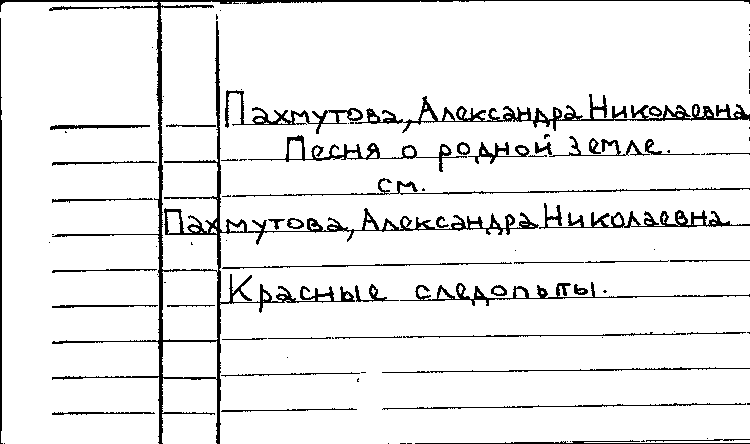 Пахмутова, Александра Николаевна
Песня о родной земле.
см.
Пахмутова, Александра Николаевна
Красные следопыты.